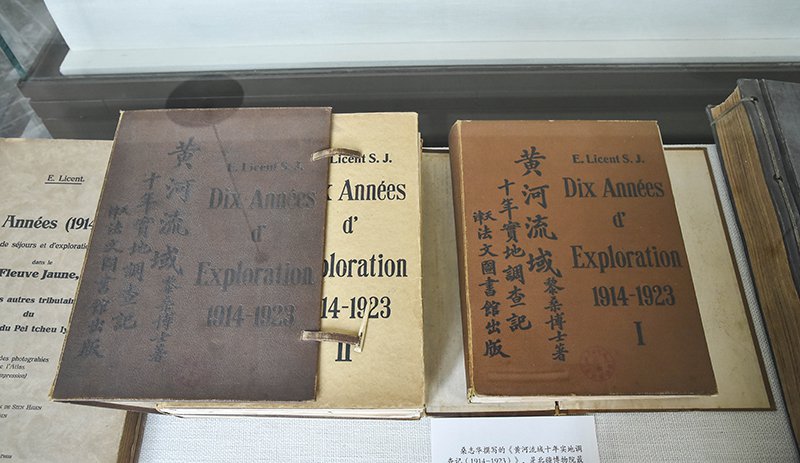 E. Licent.
Années (1914
de séjours et d'exploratio
dans le
Fleuve Jaune,
s autres tributai
du
du Pei tcheu ly
des photographies
e l'Atlas
黄河流域
十年實地調查記
黎桑博士著
津天法文圖書館出版
E. Licent S. J.
Dix Années
d'
Exploration
1914-1923
II
黄河流域
十年實地調查記
黎桑博士著
津天法文圖書館出版
E. Licent S. J.
Dix Années
d'
Exploration
1914-1923
I
桑志华撰写的《黄河流域十年实地调
查记(1914-1923)》，是北疆博物院最